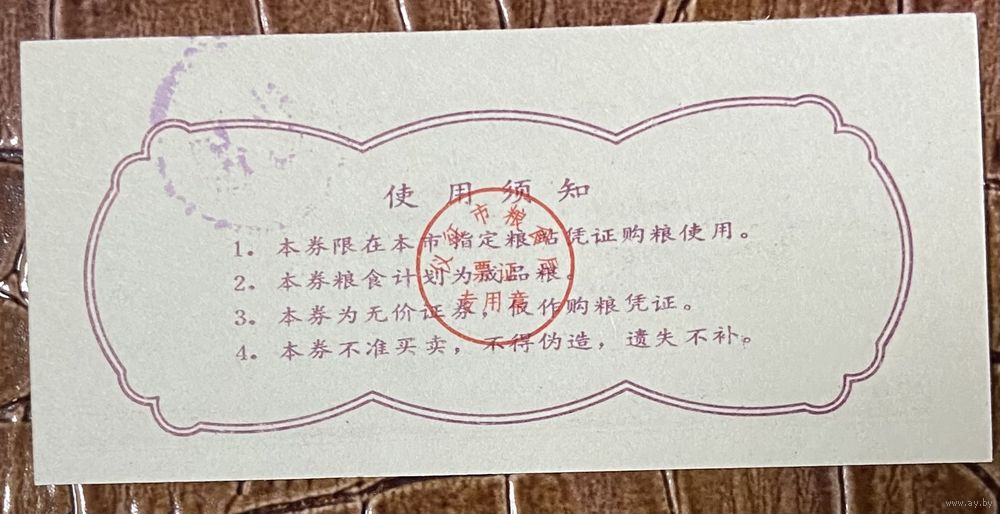 使用须知
1。本券限在本市指定粮站凭证购粮使用。
2。本券粮食计划为成品粮。
3。本券为无价证券，仅作购粮凭证。
4。本券不准买卖，不得伪造，遗失不补。
市粮食局
票证
专用章
www.ay.by